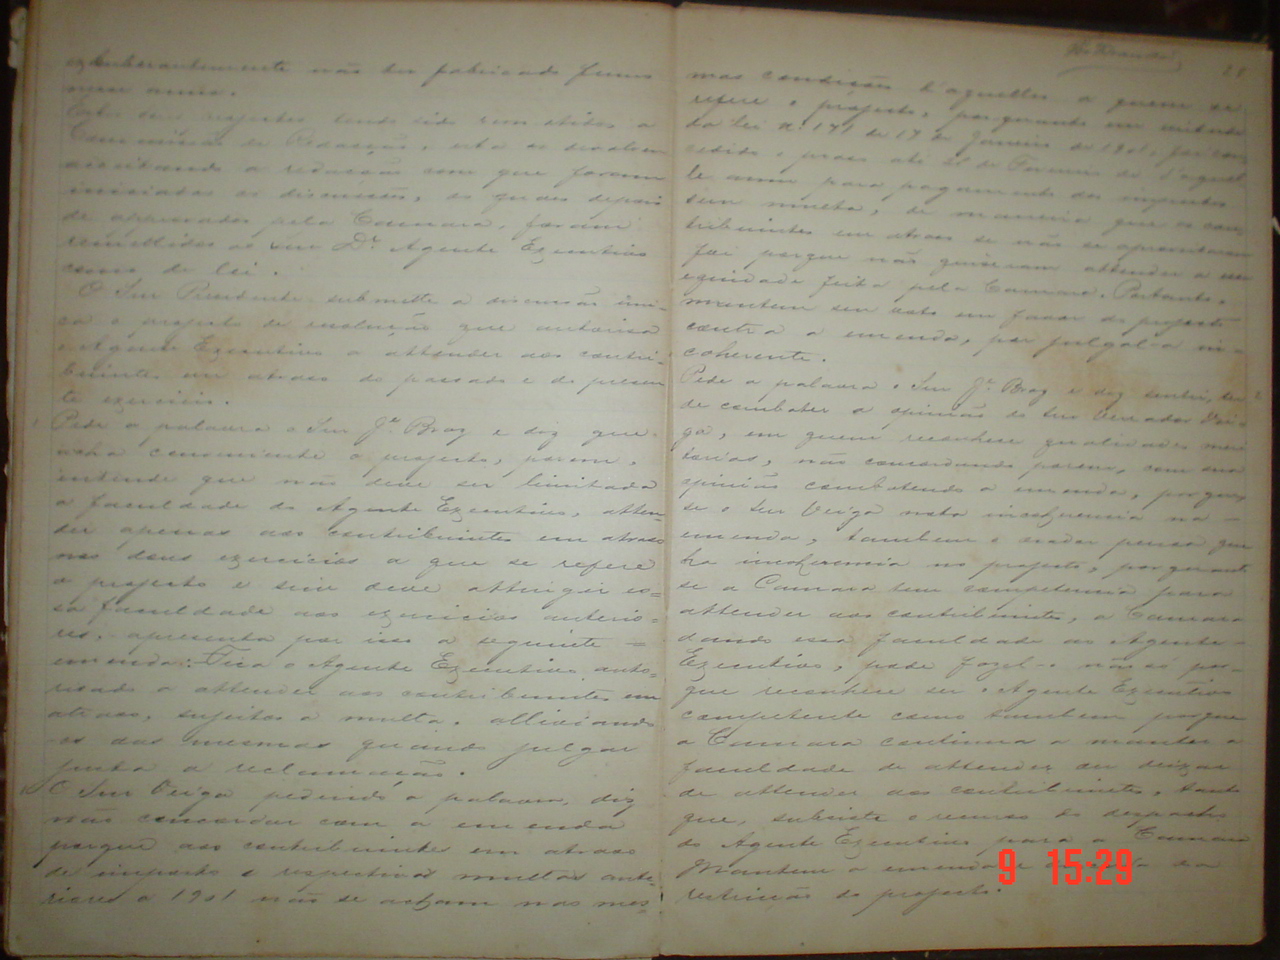 exhuberantemente não ser fabricado fumo
nem arroz.
Estes dois projectos tendo sido remettidos a
Commissão de Redacção, esta os devolveu
acceitando a redacção com que foram
iniciadas as discussões, os quaes depois
de approvados pela Camara, foram
remettidos ao Snr Dr. Agente Executivo
como de lei.
O Snr Presidente submette a discussão uni-
ca o projecto de resolução que autorisa
o Agente Executivo a attender aos contri-
buintes em atraso do passado e do presen
te exercicio.
Pede a palavra o Snr Je. Braz e diz que
acha conveniente o projecto, porem,
intende que não deve ser limitada
a faculdade do Agente Executivo, atten-
der apenas aos contribuintes em atraso
nos dous exercicios a que se refere
o projecto e sim deve attingir es=
sa faculdade aos exercicios anterio=
res, apresenta por isso a seguinte =
emenda: Fica o Agente Executivo auto=
risado a attender aos contribuintes em
atraso, sujeitos a multa, alliviando
-os das mesmas quando julgar
justa a reclamação.
O Snr Veiga pedindo a palavra, diz
não concordar com a emenda
porque aos contribuintes em atraso
de imposto e respectivas multas ante-
riores a 1901 não se acham nas mes-
28
mas condições d'aquelles a quem se
refere o projecto, porquanto em virtude
da lei n. 141 de 17 de Janeiro de 1901, foi con
cedido o praso até de Fevereiro d'aquel
le anno para pagamento dos impostos
sem multa, de maneira que os con
tribuintes em atraso se não se apresentaram
foi porque não quizeram attender a
equidade feita pela Camara. Portanto,
mantem seu voto em favor do projecto
contra a emenda, por julgal-a in-
coherente.
Pede a palavra o Snr Je. Braz e diz sentir, ter
de combater a opinião do Snr Vereador Vei-
ga, em quem reconhece qualidades meri
torias, não concordando porem, com sua
opinião combatendo a emenda, porque,
se o Snr Veiga nota incoherencia na -
emenda, tambem o orador pensa que
ha incoherencia no projecto, porquanto
se a Camara tem competencia para
attender aos contribuintes, a Camara
dando essa faculdade ao Agente -
Executivo, pode fazel-o não só por-
que reconhece ser o Agente Executivo
competente como tambem porque
a Camara continua a manter a
faculdade de attender ou deixar
de attender aos contribuintes, tanto
que, subsiste o recurso do despacho
do Agente Executivo para a Camara
Mantem a emenda
restricção do projecto.
9 15:29